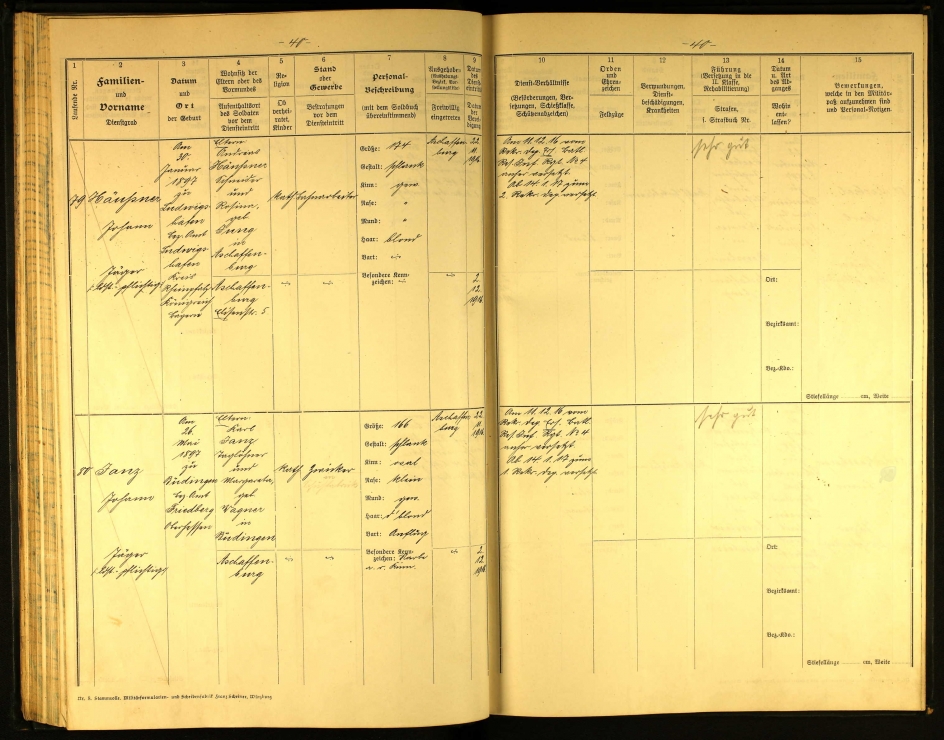 - 40 -
1
2
3
4
5
6
7
8
9
Laufende Nr.
Familien-
und
Vorname
Dienstgrad
Datum
und
Ort
der Geburt
Wohnsitz der
Eltern oder des
Vormundes
Aufenthaltsort
des Soldaten
vor dem
Diensteintritt
Re-
ligion
Ob
verhei-
ratet,
Kinder
Stand
oder
Gewerbe
Bestrafungen
vor dem
Diensteintritt
Personal-
Beschreibung
(mit dem Soldbuch
übereinstimmend)
Ausgehoben
Freiwillig
eingetreten
Datum
des
Dienst-
eintritts
Datum
der
Verei-
digung
79
Häußner
Johann
Jäger
Am
Januar
1897
zu
Ludwigs-
hafen
bez. Amt
Ludwigs-
hafen
Kreis
Rheinpfalz
Königreich
Bayern
Eltern
Andreas
Häussner
Schneider
und
Rosina,
geb.
Jung
in
Aschaffen-
burg
Aschaffen-
burg
Elisenstr. 5
Kath.
Größe: 174
Gestalt: schlank
Kinn: gew.
Nase: "
Mund: "
Haar: blond
Bart: -
Besondere Kenn-
zeichen: -
Aschaffen-
burg
22.
11.
1916
2.
12.
1916
80
Janz
Johann
Jäger
Am
26.
Mai
1897
zu
Büdingen
bez. Amt
Friedberg
Oberhessen
Eltern
Karl
Janz
Taglöhner
und
Margareta,
geb.
Wagner
in
Büdingen
Aschaffen-
burg
Kath.
Größe: 166
Gestalt: schlank
Kinn: oval
Nase: klein
Mund: gew.
Haar: d. blond
Bart: Anflug
Besondere Kenn-
zeichen: Narbe
a. r. Kinn.
Aschaffen-
burg
22.
11.
1916
2.
12.
1916
Nr. 8. Stammrolle. Militärformularien- und Schreibenfabrik Franz Scheiner, Würzburg
- 40 -
10
11
12
13
14
15
Dienst-Verhältnisse
(Beförderungen, Ver-
setzungen, Schießklasse,
Schützenabzeichen)
Orden
und
Ehren-
zeichen
Feldzüge
Verwundungen,
Dienst-
beschädigungen,
Krankheiten
Führung
(Versetzung in die
II. Klasse,
Rehabilitierung)
Strafen,
s. Strafbuch Nr.
Datum
u. Art
des Ab-
ganges
Wohin
ent-
lassen?
Bemerkungen,
welche in den Militär-
paß aufzunehmen sind
und Personal-Notizen.
Am 11. 12. 16 vom
Rekr. Dep. Ers. Batl.
Res. Inf. Rgt. Nr. 4
anher versetzt
Ab 14. 1. 17 zum
2. Rekr. Dep. versetzt
sehr gut
Ort:
Bezirksamt:
Bez.-Kdo.:
Stiefellänge cm, Weite
Am 11. 12. 16 vom
Rekr. Dep. Ers. Batl.
Res. Inf. Rgt. Nr. 4
anher versetzt
Ab 14. 1. 17 zum
1. Rekr. Dep. versetzt.
sehr gut
Ort:
Bezirksamt:
Bez.-Kdo.:
Stiefellänge cm, Weite